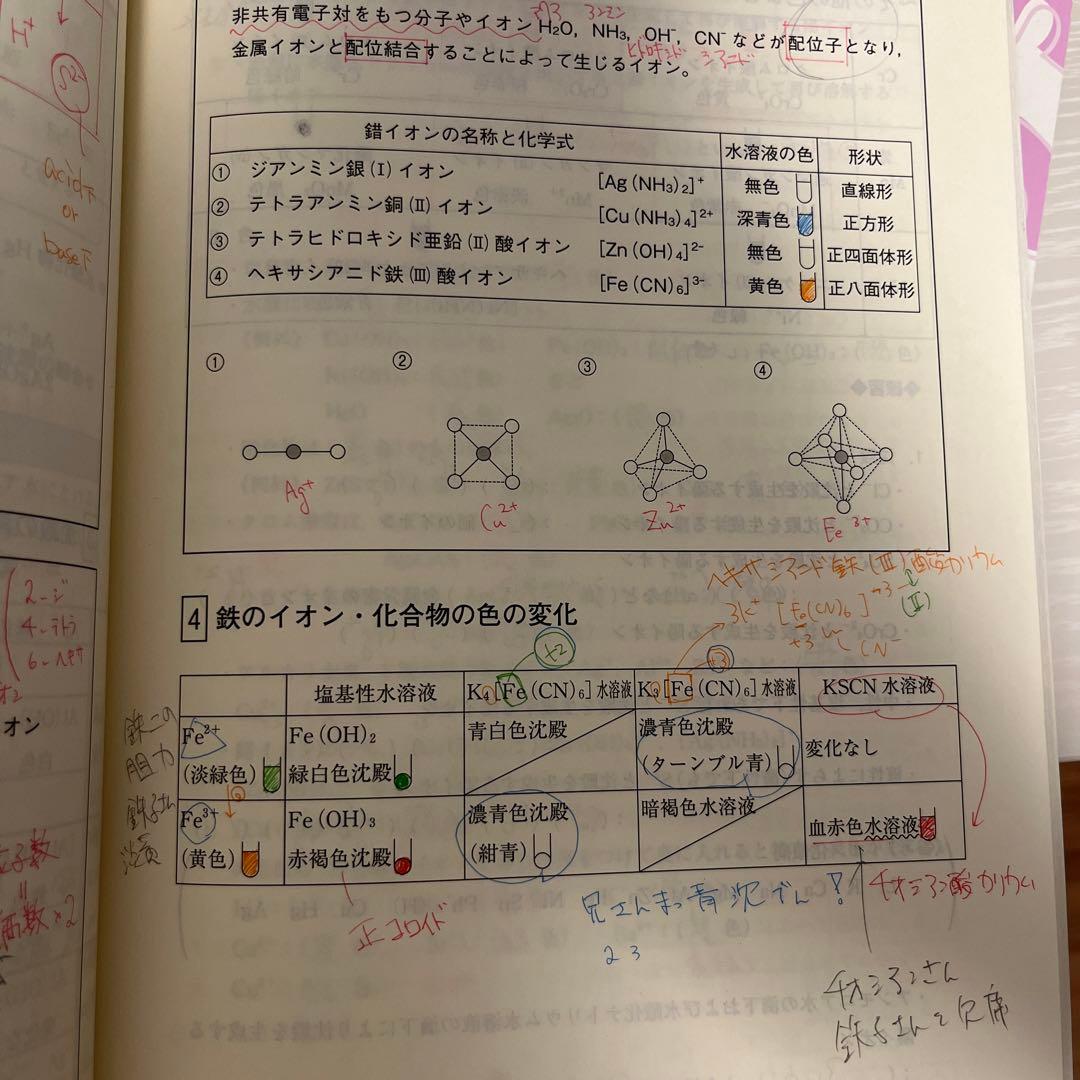 非共有電子対をもつ分子やイオン H₂O, NH₃, OH⁻, CN⁻ などが配位子となり,
金属イオンと配位結合することによって生じるイオン。
錯イオンの名称と化学式 水溶液の色 形状
① ジアンミン銀(Ⅰ)イオン [Ag(NH₃)₂]⁺ 無色 直線形
② テトラアンミン銅(Ⅱ)イオン [Cu(NH₃)₄]²⁺ 深青色 正方形
③ テトラヒドロキシド亜鉛(Ⅱ)酸イオン [Zn(OH)₄]²⁻ 無色 正四面体形
④ ヘキサシアニド鉄(Ⅲ)酸イオン [Fe(CN)₆]³⁻ 黄色 正八面体形
① ② ③ ④
Ag⁺ Cu²⁺ Zn²⁺ Fe³⁺
ヘキサシアニド鉄(Ⅲ)酸カリウム
3K⁺ [Fe(CN)₆]
(Ⅱ)
+3 CN⁻
4 鉄のイオン・化合物の色の変化
+2 +3
塩基性水溶液 K₄[Fe(CN)₆]水溶液 K₃[Fe(CN)₆]水溶液 KSCN 水溶液
Fe²⁺ Fe(OH)₂ 青白色沈殿 濃青色沈殿 変化なし
(淡緑色) 緑白色沈殿 (ターンブル青)
Fe³⁺ Fe(OH)₃ 濃青色沈殿 暗褐色水溶液 血赤色水溶液
(黄色) 赤褐色沈殿 (紺青)
正コロイド
兄さんまっ青沈でん!
2 3
チオシアン酸カリウム
チオシアンさん
鉄子さんと欠席
H⁺
S²⁻
acid下
or
base下
2-ジ
4-テトラ
6-ヘキサ
イオン
子数
=
価数×2